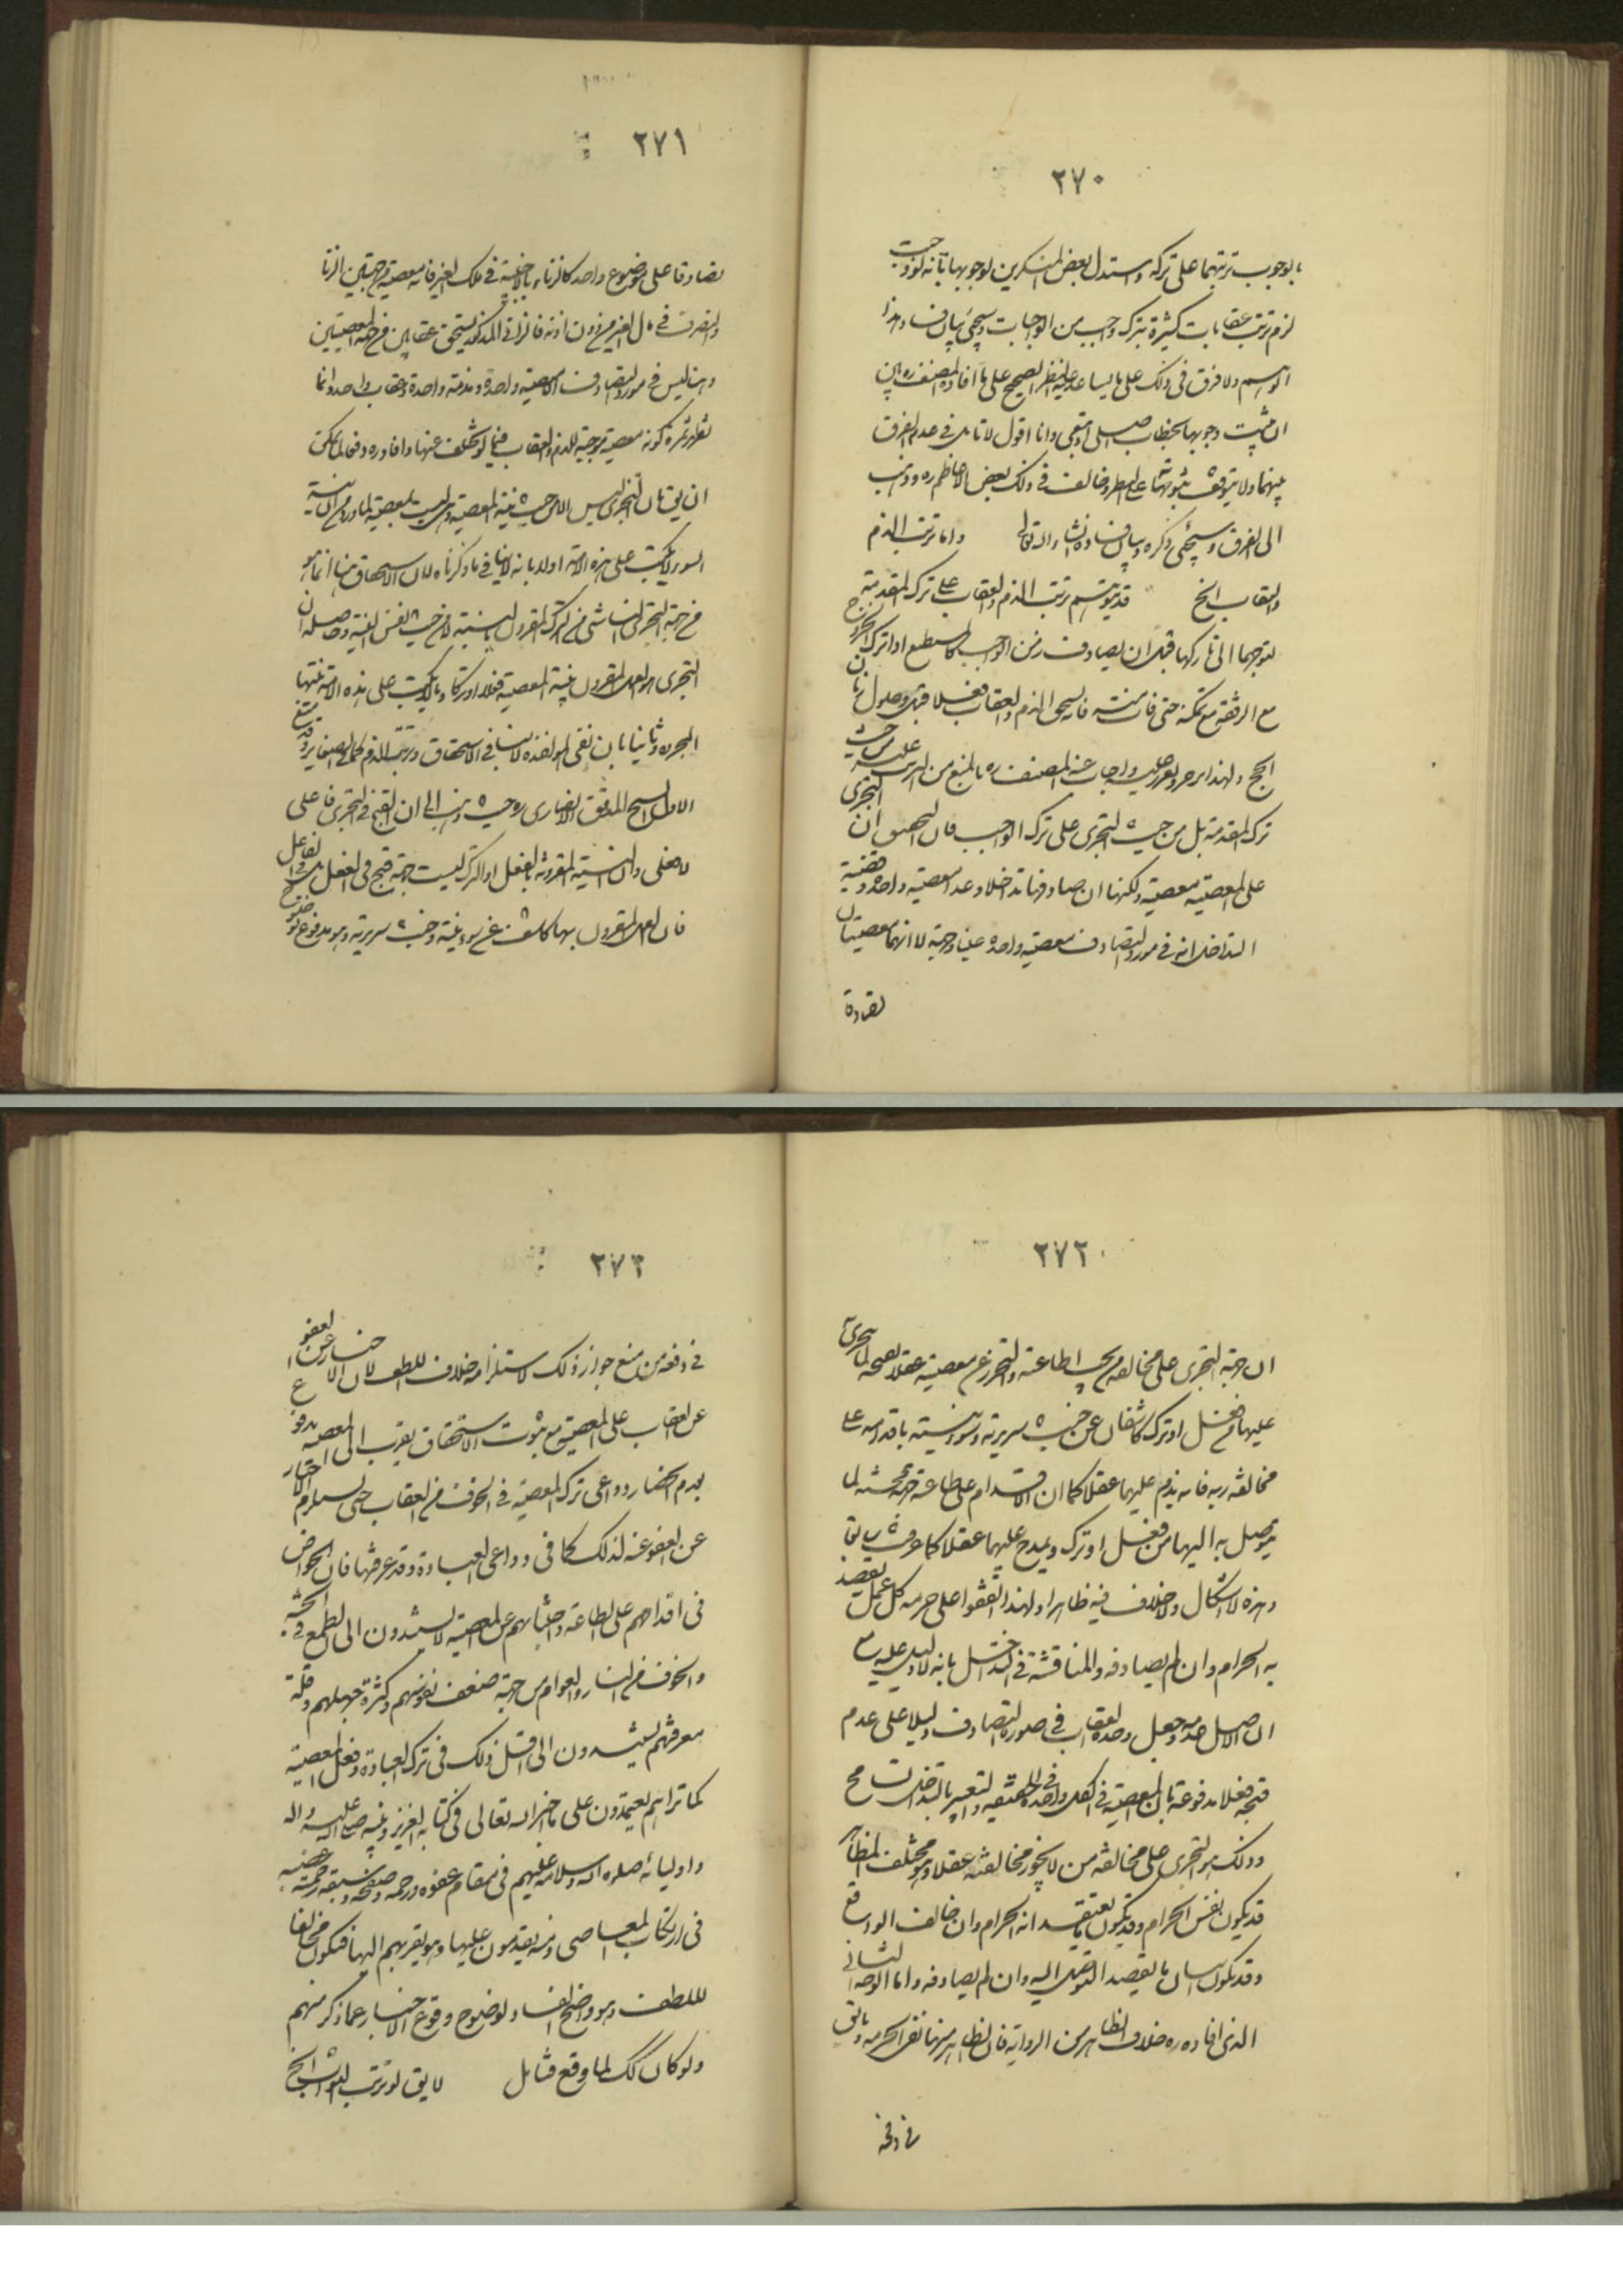 ٢٧٠
بالوجوب ترتبهما على تركه واستدل بعض المنكرين لوجوبها بانه لو وجبت
لزم ترتب عقابات كثيرة بترك واجب من الواجبات وسيجئ بيان فساد هذا
التوهم ولا فرق في ذلك على ما يساعد عليه النظر الصحيح على ما افاده المصنف ره بين
ان يثبت وجوبها بخطاب اصلى او تبعى وانا اقول لا تامل في عدم الفرق
بينهما ولا يتوقف ثبوتهما على وخالف في ذلك بعض الاعاظم ره وذهب
الى الفرق وسيجئ ذكره وبيان فساده انشاء الله تعالى واما ترتب الذم
والعقاب الخ قد يتوهم ترتب الذم والعقاب على ترك المقدمة
لتوجهما الى تاركها قبل ان يصادف زمن الواجب كالمستطيع اذا ترك الخروج
مع الرفقة مع تمكنه حتى فاتته فانه يستحق الذم والعقاب فعلا قبل وصول زمان
الحج ولهذا واجاب عنه المصنف ره بالمنع من الترتب عليه من حيث
ترك المقدمة بل من حيث التجرى على ترك الواجب فان التحقيق ان التجرى
على المعصية معصية ولكنها ان صادفها تداخلا وعدا معصية واحدة وقضية
التداخل انه في مورد التصادف معصية واحدة عينا وجهة لا انهما معصيتان
تصادقا
٢٧١
تصادقا على موضوع واحد كالزناء بالاجنبية في ملك الغير فانه معصية من جهتين الزنا
والتصرف في مال الغير من دون اذنه فالزانى المذكور يستحق عقابين من جهة المعصيتين
وهنا ليس في مورد التصادف الا معصية واحدة ومذمة واحدة وعقاب واحد وانما
تظهر ثمرة كونه معصية موجبة للذم والعقاب فيما لو تخلف عنها وافاد ره دفعا لما يمكن
ان يق بان التجرى ليس الا من حيث نية المعصية وهى ليست بمعصية لما ورد من ان نية
السوء لا تكتب على هذه الامة اولا بانه لا ينافى ما ذكرناه لان الاستحقاق هنا انما هو
من جهة التجرى الناشى من الترك المقرون بالنية لا من حيث نفس النية وحاصله ان
التجرى هو العمل المقرون بنية المعصية فعلا او تركا وما لا يكتب على هذه الامة نيتها
المجردة وثانيا بان نفى المؤاخذة لا ينافى الاستحقاق وترتب الذم كما في الصغاير وقد منع
الاول الشيخ المدقق الانصارى ره حيث ذهب الى ان القبح في التجرى فاعلى
لا فعلى وان النية المقرونة بالفعل او الترك ليست جهة قبح في الفعل بل في الفاعل
فان العمل المقرون بها كاشف عن سوء نيته وخبث سريرته وهو مدفوع بوضوح
٢٧٢
ان جهة التجرى على مخالفة من يجب اطاعته والتحرز عن معصيته عقلا تصحح لما تجرى
عليها من فعل او ترك كاشفان عن خبث سريرته وسوء نيته باقدامه على
مخالفة ربه فانه يذم عليهما عقلا كما ان الاقدام على طاعته جهة محسنة لما
يتوصل به اليها من فعل او ترك ويمدح عليهما عقلا كما عرفت سابقا
وهذه لا اشكال ولا خلاف فيه ظاهرا ولهذا اتفقوا على حرمة كل عمل يقصد
به الحرام وان لم يصادفه والمناقشة في التداخل بانه لا دليل عليه مع
ان الاصل عدمه وجعل وحدة العقاب في صورة التصادف دليلا على عدم
قبحه فعلا مدفوعة بان المعصية في الكل واحدة في الحقيقة والتعبير بالتداخل تسامح
وذلك هو التجرى على مخالفة من لا يجوز مخالفته عقلا وهو مختلف المظاهر
قد يكون بنفس الحرام وقد يكون بما يعتقد انه الحرام وان خالف الواقع
وقد يكون باتيان ما يقصد التوصل اليه وان لم يصادفه واما الوجه الثانى
الذى افاده ره خلاف الظاهر من الرواية فان الظاهر منها نفى الحرمة وما يق
في دفعه
٢٧٣
في دفعه من منع جواز ذلك لاستلزامه خلاف اللطف لان الاخبار عن العفو
عن العقاب على المعصية مع ثبوت الاستحقاق يقرب الى المعصية مدفوع
بعدم انحصار دواعى ترك المعصية في الخوف من العقاب حتى يستلزم الاخبار
عن العفو عنه لذلك كما في دواعى العبادة وقد عرفتها فان الخواص
في اقدامهم على الطاعة واجتنابهم عن المعصية لا يستندون الى الطمع في الجنة
والخوف من النار والعوام من جهة ضعف نفوسهم وكثرة جهلهم وقلة
معرفتهم يستندون الى اقل ذلك في ترك العبادة وفعل المعصية
كما تراهم يعتمدون على ما اخبر الله تعالى في كتابه العزيز ونبيه صلى الله عليه واله
واوليائه صلوة الله وسلامه عليهم في مقام عفوه ورحمته وصفحه وسبقة رحمته غضبه
في ارتكاب المعاصى ومنه يقدمون عليها وهو يقربهم اليها فيكون مخالفا
لللطف وهو واضح الفساد لوضوح وقوع الاخبار عما ذكر منهم
ولو كان كك لما وقع فتامل لا يق لو ترتب الثواب الخ